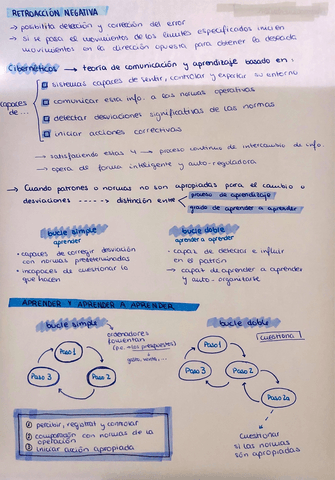 RETROACCIÓN NEGATIVA
→ posibilita detección y corrección del error
→ si se pasa el movimiento de los límites especificados inician
movimientos en la dirección opuesta para obtener la deseada
Cibernéticos → teoría de comunicación y aprendizaje basado en:
capaces de ...
1 sistemas capaces de sentir, controlar y explorar su entorno
2 comunicar esta info. a las normas operativas
3 detectar desviaciones significativas de las normas
4 iniciar acciones correctivas
→ satisfaciendo estas 4 → proceso continuo de intercambio de info.
→ opera de forma inteligente y auto-reguladora
→ Cuando patrones o normas no son apropiadas para el cambio o
desviaciones -----→ distinción entre
proceso de aprendizaje
grado de aprender a aprender
bucle simple
aprender
• capaces de corregir desviación
con normas predeterminadas
• incapaces de cuestionar lo
que hacen
bucle doble
aprender a aprender
• capaz de detectar e influir
en el patrón
→ capaz de aprender a aprender
y auto-organizarse
APRENDER Y APRENDER A APRENDER
bucle simple
ordenadores
fomentan
(p.e. → los presupuestos)
↓
gastos, ventas, ...
Paso 1
Paso 2
Paso 3
bucle doble
cuestiona
Paso 1
Paso 2
Paso 3
Paso 2a
cuestionar
si las normas
són apropiadas
① percibir, registrar y controlar
② comparación con normas de la
operación
③ iniciar acción apropiada